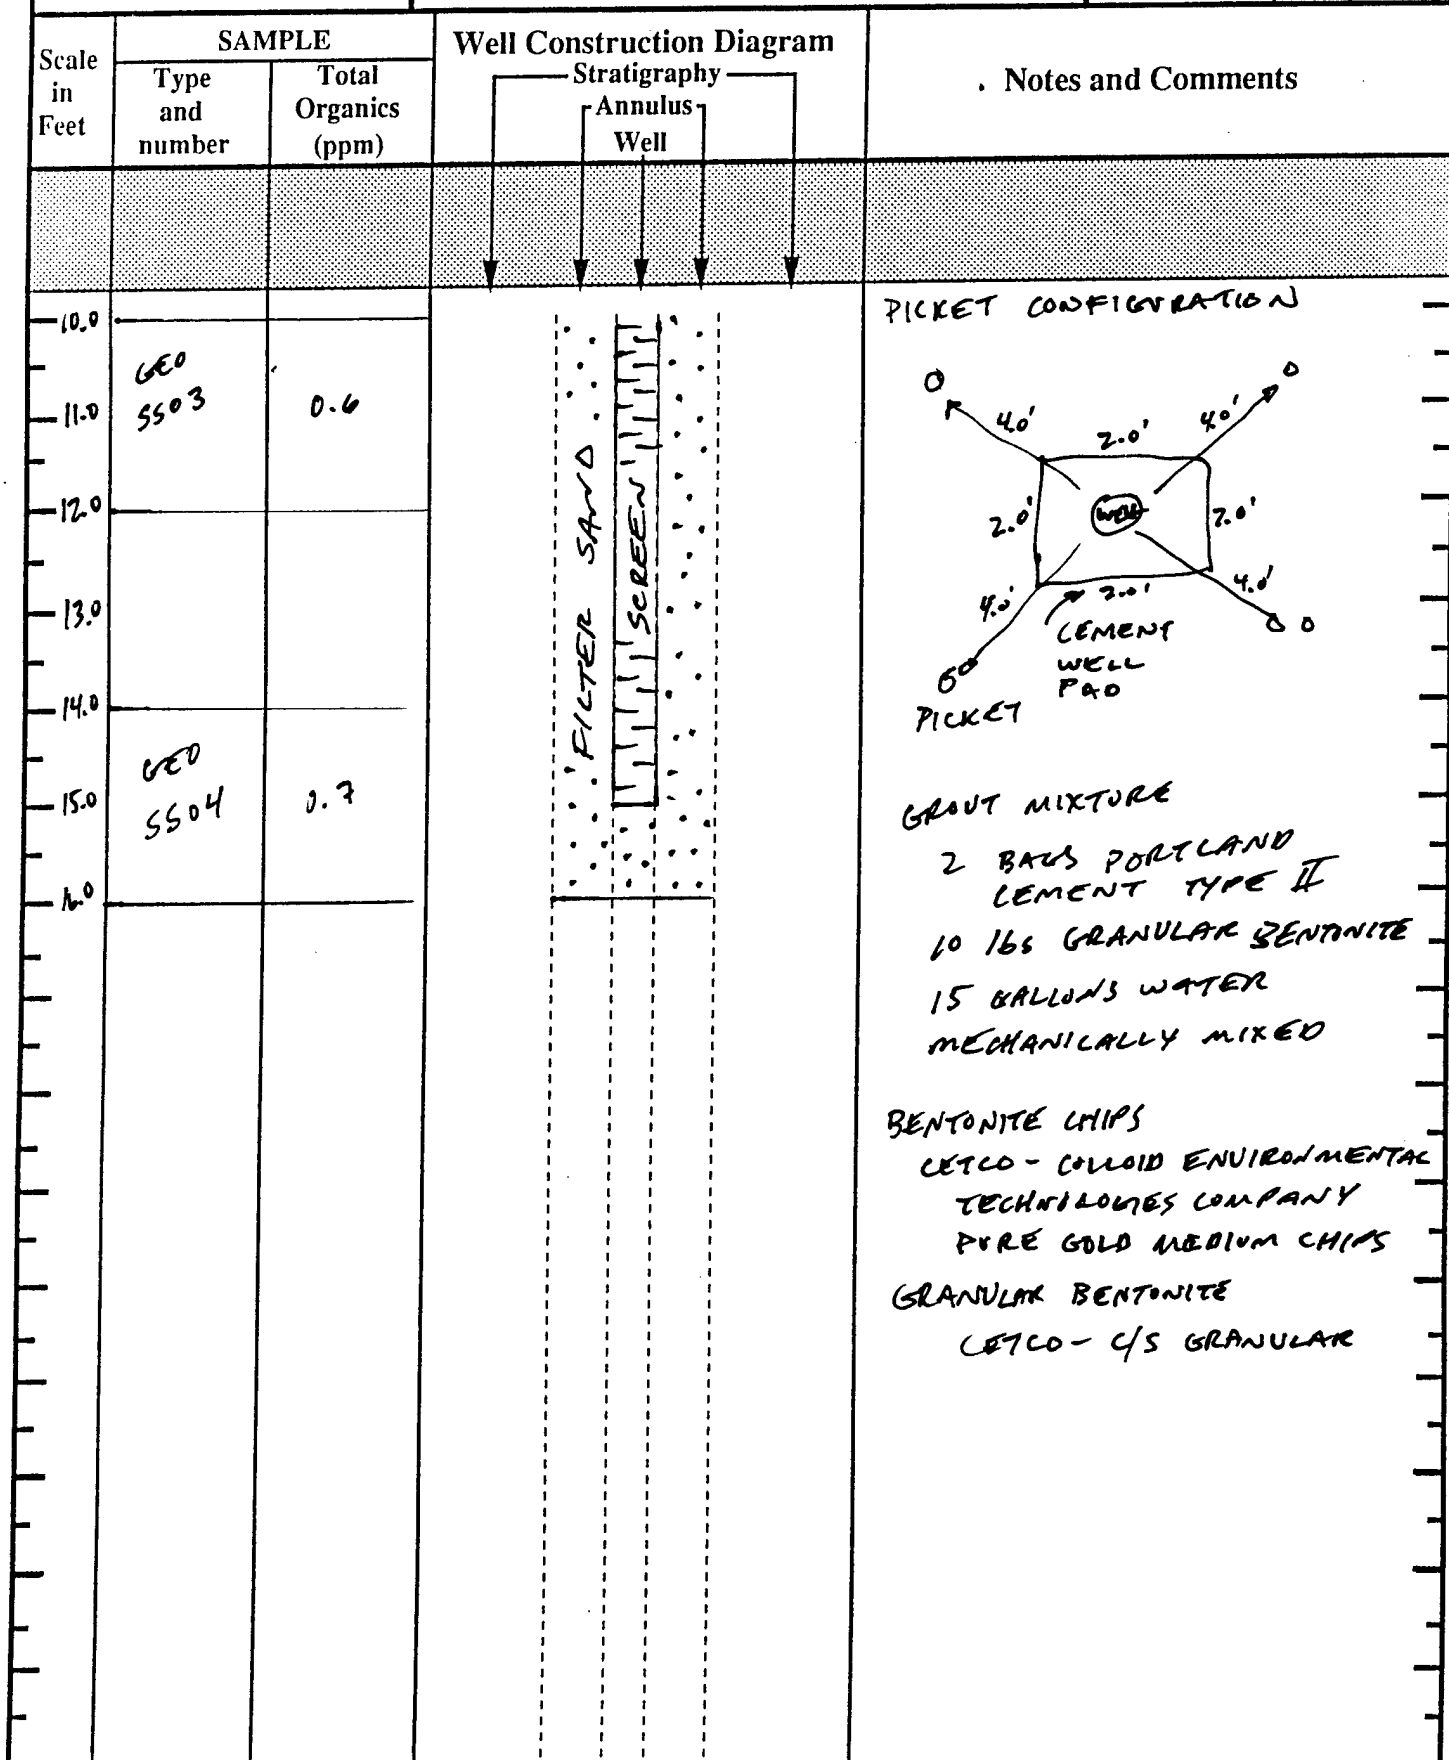 Scale
in
Feet
SAMPLE
Type
and
number
Total
Organics
(ppm)
Well Construction Diagram
Stratigraphy
Annulus
Well
. Notes and Comments
10.0
GEO
SS03
0.6
11.0
12.0
13.0
14.0
GEO
SS04
0.7
15.0
16.0
FILTER SAND
SCREEN
PICKET CONFIGURATION
4.0'
4.0'
2.0'
2.0'
WELL
2.0'
4.0'
2.0'
4.0'
CEMENT
WELL
PAD
PICKET
GROUT MIXTURE
2 BAGS PORTLAND
CEMENT TYPE II
10 lbs GRANULAR BENTONITE
15 GALLONS WATER
MECHANICALLY MIXED
BENTONITE CHIPS
CETCO - COLLOID ENVIRONMENTAL
TECHNOLOGIES COMPANY
PURE GOLD MEDIUM CHIPS
GRANULAR BENTONITE
CETCO - C/S GRANULAR